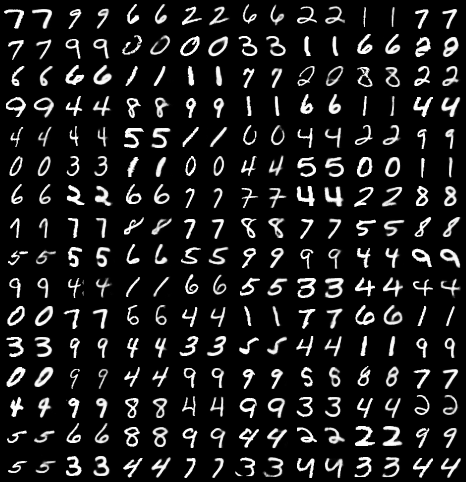 7 7 9 9 6 6 2 2 6 6 2 2 1 1 7 7
7 7 9 9 0 0 0 0 3 3 1 1 6 6 2 8
6 6 6 6 1 1 1 1 7 7 2 0 8 8 2 2
9 9 4 4 8 8 9 9 1 1 6 6 1 1 4 4
4 4 4 4 5 5 1 1 0 0 4 4 2 2 9 9
0 0 3 3 1 1 0 0 4 4 5 5 0 0 1 1
6 6 2 2 6 6 7 7 7 7 4 4 2 2 8 8
1 1 7 7 8 8 7 7 8 8 7 7 5 5 8 8
5 5 5 5 6 6 5 5 9 9 9 9 4 4 9 9
9 9 4 4 1 1 6 6 5 5 3 3 4 4 4 4
0 0 7 7 6 6 4 4 1 1 7 7 6 6 1 1
3 3 9 9 4 4 3 3 5 5 4 4 1 1 9 9
0 0 9 9 4 4 9 9 9 9 5 8 8 8 7 7
4 4 9 9 8 8 4 4 9 9 3 3 4 4 2 2
5 5 6 6 8 8 9 9 4 4 2 2 2 2 9 9
5 5 3 3 4 4 7 7 3 3 4 4 3 3 4 4